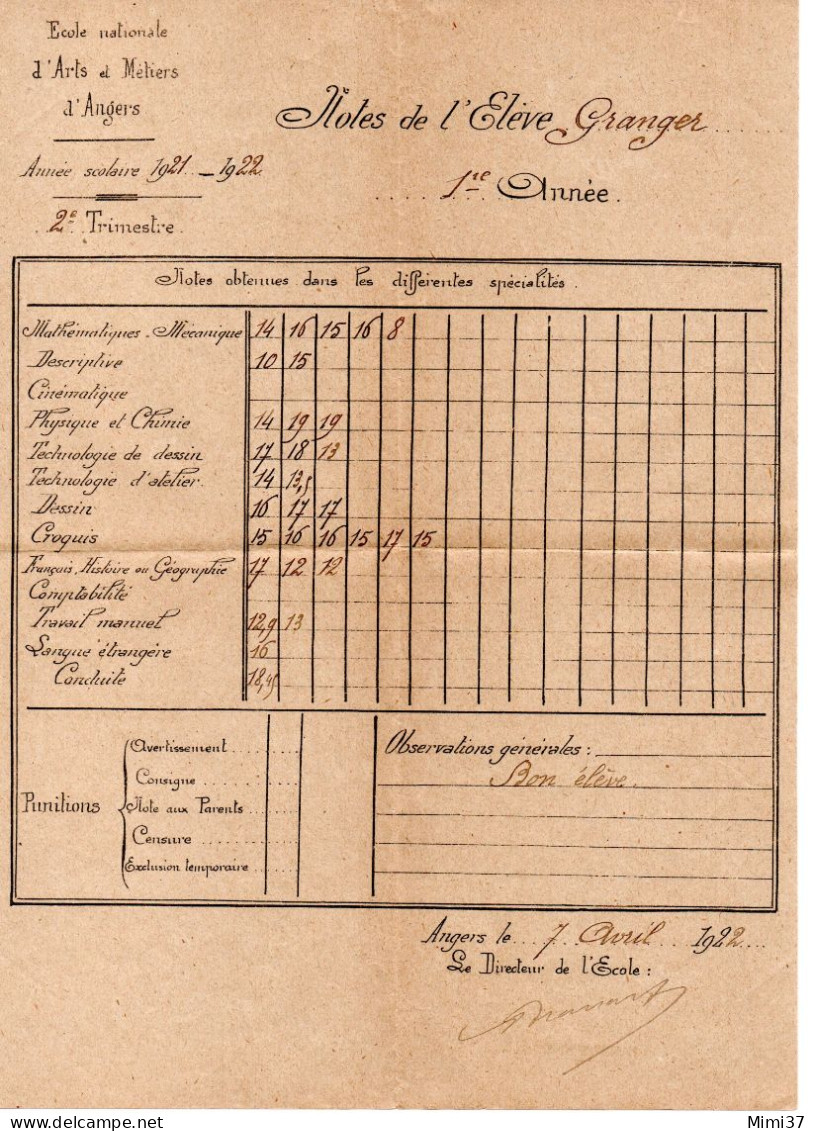 Ecole nationale
d'Arts et Métiers
d'Angers
Notes de l'Elève Granger
Année scolaire 1921 - 1922
1re Année.
2e Trimestre.
Notes obtenues dans les différentes spécialités.
Mathématiques. Mécanique 14 16 15 16 8
Descriptive 10 15
Cinématique
Physique et Chimie 14 19 19
Technologie de dessin 17 18 13
Technologie d'atelier. 14 13,5
Dessin 16 17 17
Croquis 15 16 16 15 17 15
Français, Histoire ou Géographie 17 12 12
Comptabilité
Travail manuel 12,9 13
Langue étrangère 16
Conduite 18,45
Punitions
Avertissement
Consigne
Note aux Parents
Censure
Exclusion temporaire
Observations générales:
Bon élève.
Angers le 7 Avril 1922
Le Directeur de l'Ecole:
Mimi37